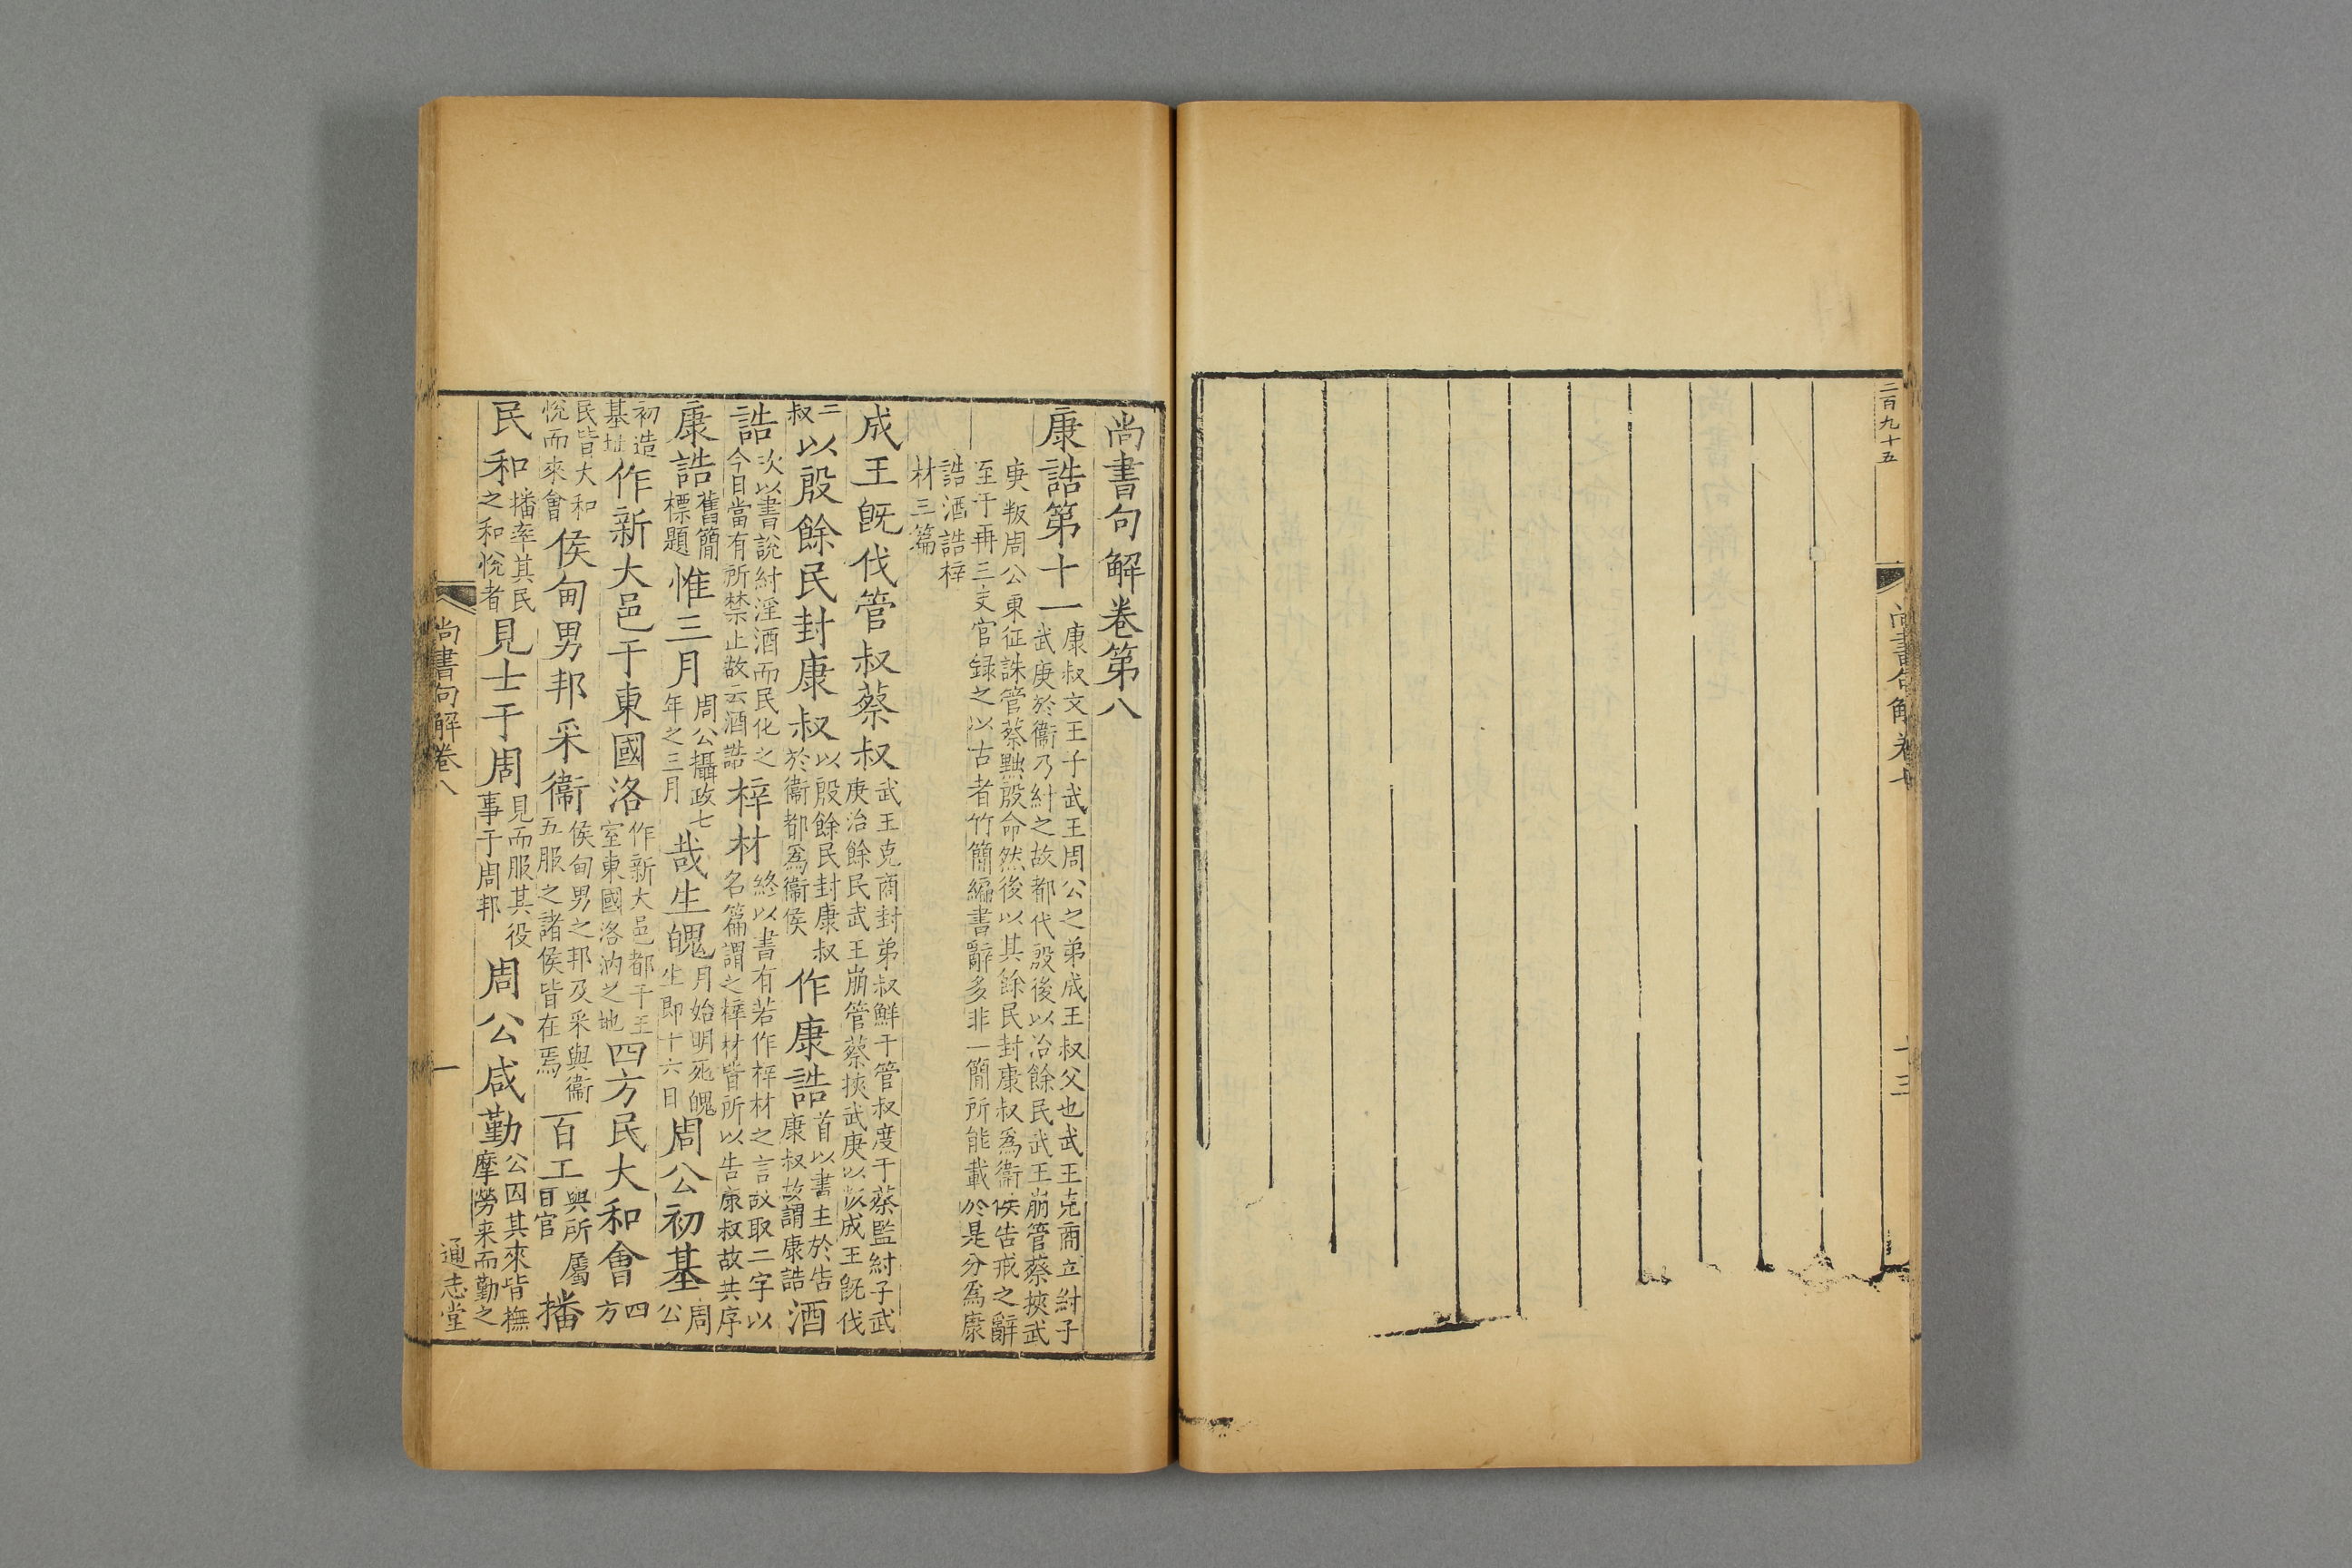 二百九十五
尚書句解卷七
十三
尚書句解卷第八
康誥第十一康叔文王子武王周公之弟成王叔父也武王克商立紂子
武庚於衞乃紂之故都代殷後以治餘民武王崩管蔡挾武
庚叛周公東征誅管蔡黜殷命然後以其餘民封康叔爲衞侯告戒之辭
至于再三史官録之以古者竹簡編書辭多非一簡所能載於是分爲康
誥酒誥梓
材三篇
成王旣伐管叔蔡叔武王克商封弟叔鮮于管叔度于蔡監紂子武
庚治餘民武王崩管蔡挾武庚以叛成王旣伐
二
叔
以殷餘民封康叔以殷餘民封康叔
於衞都爲衞侯
作康誥首以書主於告
康叔故謂康誥
酒
誥次以書說紂淫酒而民化之
今日當有所禁止故云酒誥
梓材終以書有若作梓材之言故取二字以
名篇謂之梓材皆所以告康叔故共序
康誥舊簡
標題
惟三月周公攝政七
年之三月
哉生魄月始明死魄
生即十六日
周公初基周
公
初造
基址
作新大邑于東國洛作新大邑都于王
室東國洛汭之地
四方民大和會四
方
民皆大和
悅而來會
侯甸男邦采衞侯甸男之邦及采與衞
五服之諸侯皆在焉
百工與所屬
百官
播
民和播率其民
之和悅者
見士于周見而服其役
事于周邦
周公咸勤公因其來皆撫
摩勞来而勤之
尚書句解卷八
一
通志堂